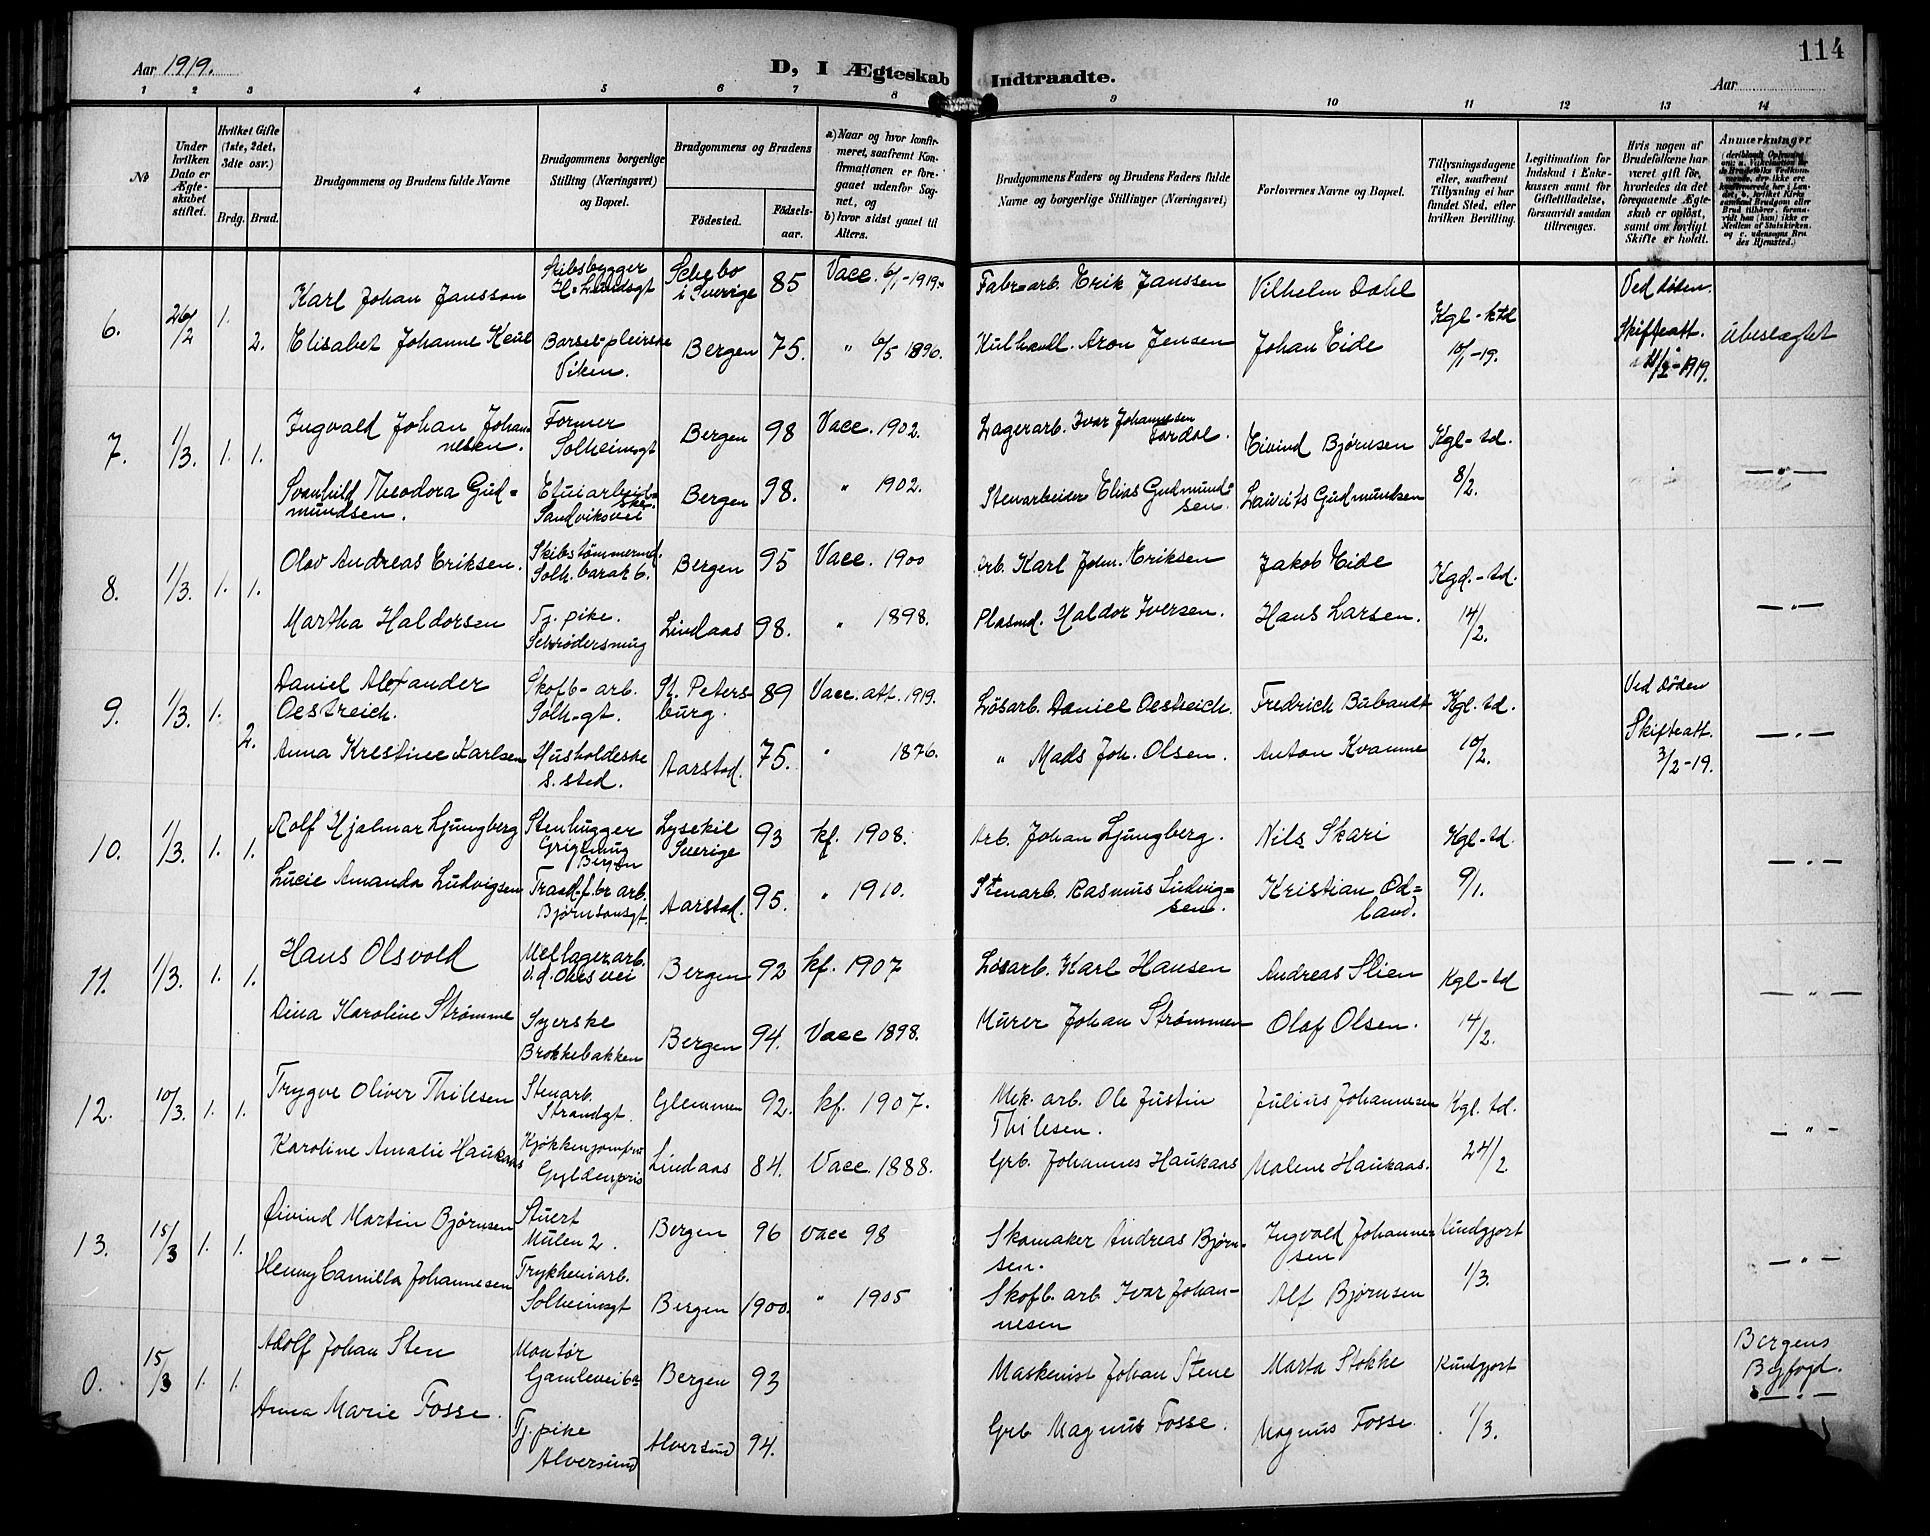 114
Aar 1919.
D, I Ægteskab Indtraadte.
Aar
1 2 3 4 5 6 7 8 9 10 11 12 13 14
No
Under hvilken Dato er Ægteskabet stiftet.
Hvilket Gifte (1ste, 2det, 3dte osv.)
Brdg. Brud.
Brudgommens og Brudens fulde Navne
Brudgommens borgerlige Stilling (Næringsvei) og Bopæl.
Brudgommens og Brudens
Fødested.
Fødselsaar.
a) Naar og hvor konfirmeret, saafremt Konfirmationen er foregaaet udenfor Sognet, og
b) hvor sidst gaaet til Alters.
Brudgommens Faders og Brudens Faders fulde Navne og borgerlige Stillinger (Næringsvei)
Forlovernes Navne og Bopæl.
Tillysningsdagene eller, saafremt Tillysning ei har fundet Sted, efter hvilken Bevilling.
Legitimation for Indskud i Enkekassen samt for Giftetilladelse, forsaavidt saadan tiltrænges.
Hvis nogen af Brudefolkene har været gift før, hvorledes da det foregaaende Ægteskab er opløst, samt om lovligt Skifte er holdt.
Anmerkninger
6. 26/2 1. Karl Johan Jansson Schebo i Sverige 85 Vacc. 6/1-1919. Fabr.arb. Erik Janssen Vilhelm Dahl Kgl-ktd 10/1-19. Ved døden.
2. Elisabet Johanne Keül Barselpleirske Viken. Bergen 75. " 6/5 1890. Kulhandl. Aron Jensen Johan Eide Skifteatt. 11/2-1919. übeslægtet
7. 1/3. 1. 1. Ingvald Johan Johannesen. Former Solheimsgt Bergen 98 Vacc. 1902. Lagerarb. Ivar Johannesen Tordal. Eivind Bjørnsen Kgl-td. 8/2. — " —
Svanhild Theodora Gudmündsen. Etuiarbeiderske. Sandviksvei Bergen 98. " 1902. Stenarbeider Elias Gudmundsen. Lauritz Gudmundsen
8. 1/3. 1. 1. Olav Andreas Eriksen. Skibstømmermd. Solh. barak 6. Bergen 95 Vacc. 1900 Arb. Karl Johan. Eriksen Jakob Eide Kgd.-td. 14/2. — " —
Martha Haldorsen Tj. pike. Schrødersmug Lindaas 98. " 1898. Plasmd. Haldor Iversen. Hans Larsen.
9. 1/3. 1. Daniel Alexander Oestreich. Skofb-arb. Solh-gt. St. Petersburg. 89 Vacc. att. 1919. Løsarb. Daniel Oestreich. Fredrich Bubandt Kgl. td. 10/2. Ved døden
2. Anna Krestine Karlsen Husholderske s. sted. Aarstad. 75. " 1876. " Mads Joh. Olsen. Anton Kvamme Skifteatt. 3/2-19. — " —
10. 1/3. 1. 1. Rolf Hjalmar Ljungberg Stenhugger Bergen Lysekil Sverige 93 kf. 1908. Arb. Johan Ljungberg. Nils Skari Kgl-td. 9/1. — " —
Lucie Amanda Ludvigsen Traad.f.br arb. Bjørnsonsgt. Aarstad. 95. " 1910. Stenarb. Rasmus Ludvigsen. Kristian Odland.
11. 1/3. 1. 1. Hans Olsvold Mellagerarb. v.d. Ohes vei Bergen 92 kf. 1907 Løsarb. Karl Hansen Andreas Slien Kgl-td 14/2. — " —
Dina Karoline Strømme Syerske Brokkebakken Bergen 94. Vacc 1898. Murer Johan Strømmen Olaf Olsen.
12. 10/3. 1. 1. Trygve Oliver Thilesen Stenarb. Strandgt. Glemmen 92. kf. 1907. Mek. arb. Ole Justin Thilesen. Julius Johannesen Kgl. td. 24/2 — " —
Karoline Amalie Haukaas Kjøkkenjomfru Gyldenpris Lindaas 84. Vacc. 1888. Grb. Johannes Haukaas Malene Haukaas.
13. 15/3 1. 1. Øivind Martin Bjørnsen Stuert Mulen 2. Bergen 96 Vacc 98 Skomaker Andreas Bjørnsen. Ingvald Johannesen Kundgjort 1/3. — " —
Henny Camilla Johannesen Trykkeriarb. Solheimsgt Bergen 1900. " 1905 Skofb. arb. Ivar Johannesen Alf Bjørnsen
0. 15/3 1. 1. Adolf Johan Sten Montør Gamlevei 6a Bergen 93 Maskinist Johan Stene Marta Stokke Kundgjort 1/3. Bergens Byfogd. — " —
Anna Marie Fosse. Tj. pike Alversund Alversund 94. Grb Magnus Fosse. Magnus Fosse.